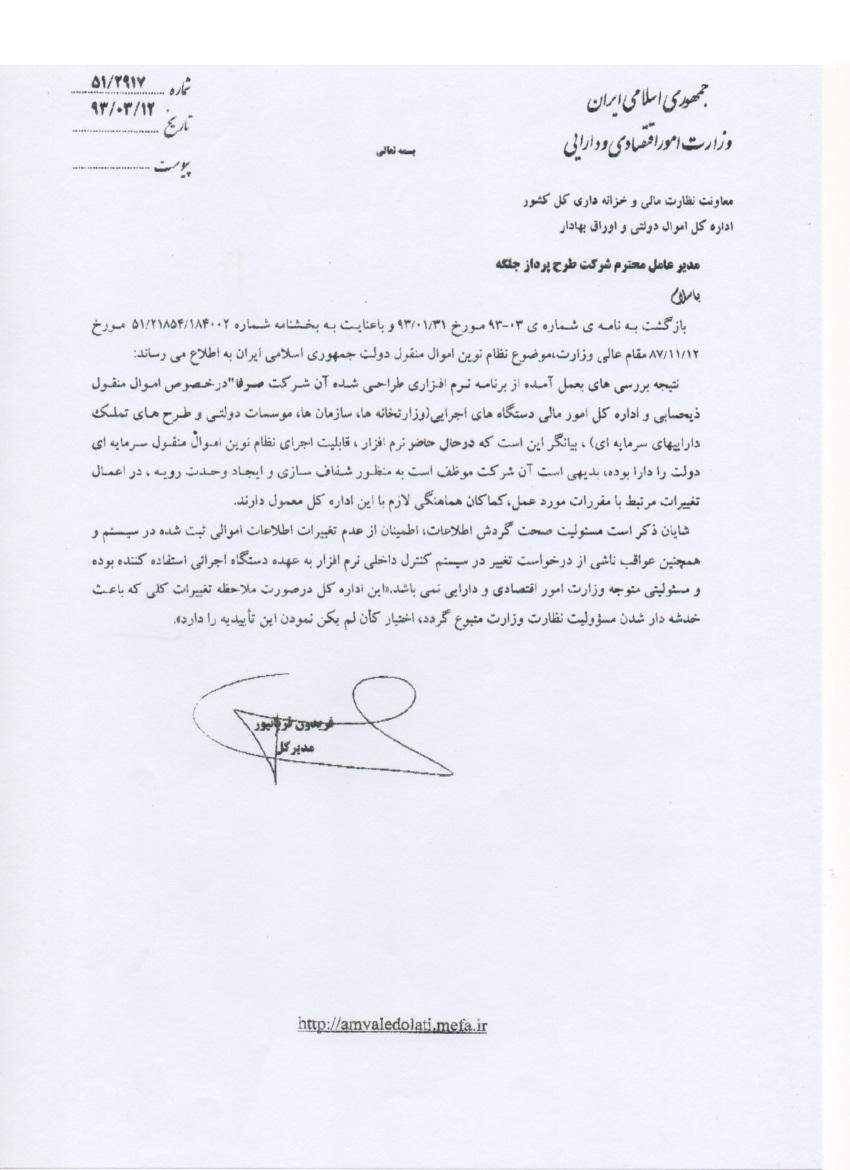 جمهوری اسلامی ایران
وزارت امور اقتصادی و دارایی
شماره ۵۱/۲۹۱۷
تاریخ ۹۳/۰۳/۱۲
پیوست
بسمه تعالی
معاونت نظارت مالی و خزانه داری کل کشور
اداره کل اموال دولتی و اوراق بهادار
مدیر عامل محترم شرکت طرح پرداز جلگه
باسلام
بازگشت به نامه ی شماره ی ۰۳-۹۳ مورخ ۹۳/۰۱/۳۱ و باعنایت به بخشنامه شماره ۵۱/۲۱۸۵۴/۱۸۴۰۰۲ مورخ
۸۷/۱۱/۱۲ مقام عالی وزارت،موضوع نظام نوین اموال منقول دولت جمهوری اسلامی ایران به اطلاع می رساند:
نتیجه بررسی های بعمل آمده از برنامه نرم افزاری طراحی شده آن شرکت صرفا"درخصوص اموال منقول
ذیحسابی و اداره کل امور مالی دستگاه های اجرایی(وزارتخانه ها، سازمان ها، موسسات دولتی و طرح های تملک
داراییهای سرمایه ای) ، بیانگر این است که درحال حاضر نرم افزار ، قابلیت اجرای نظام نوین اموال منقول سرمایه ای
دولت را دارا بوده، بدیهی است آن شرکت موظف است به منظور شفاف سازی و ایجاد وحدت رویه ، در اعمال
تغییرات مرتبط با مقررات مورد عمل،کماکان هماهنگی لازم با این اداره کل معمول دارند.
شایان ذکر است مسئولیت صحت گردش اطلاعات، اطمینان از عدم تغییرات اطلاعات اموالی ثبت شده در سیستم و
همچنین عواقب ناشی از درخواست تغییر در سیستم کنترل داخلی نرم افزار به عهده دستگاه اجرائی استفاده کننده بوده
و مسئولیتی متوجه وزارت امور اقتصادی و دارایی نمی باشد.«این اداره کل درصورت ملاحظه تغییرات کلی که باعث
خدشه دار شدن مسؤولیت نظارت وزارت متبوع گردد، اختیار کأن لم یکن نمودن این تأییدیه را دارد».
فریدون قربانپور
مدیرکل
http://amvaledolati.mefa.ir